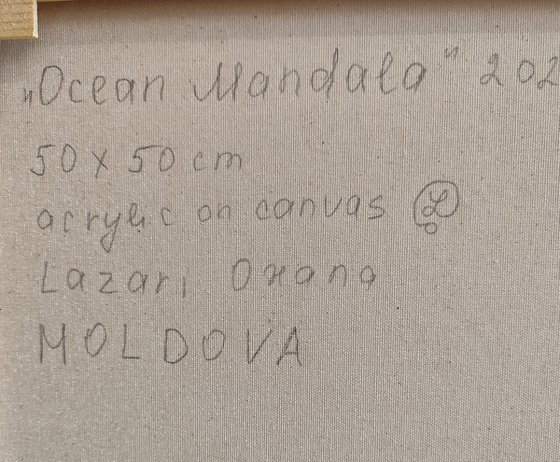 „Ocean Mandala" 202
50 x 50 cm
acrylic on canvas
Lazari Oxana
MOLDOVA